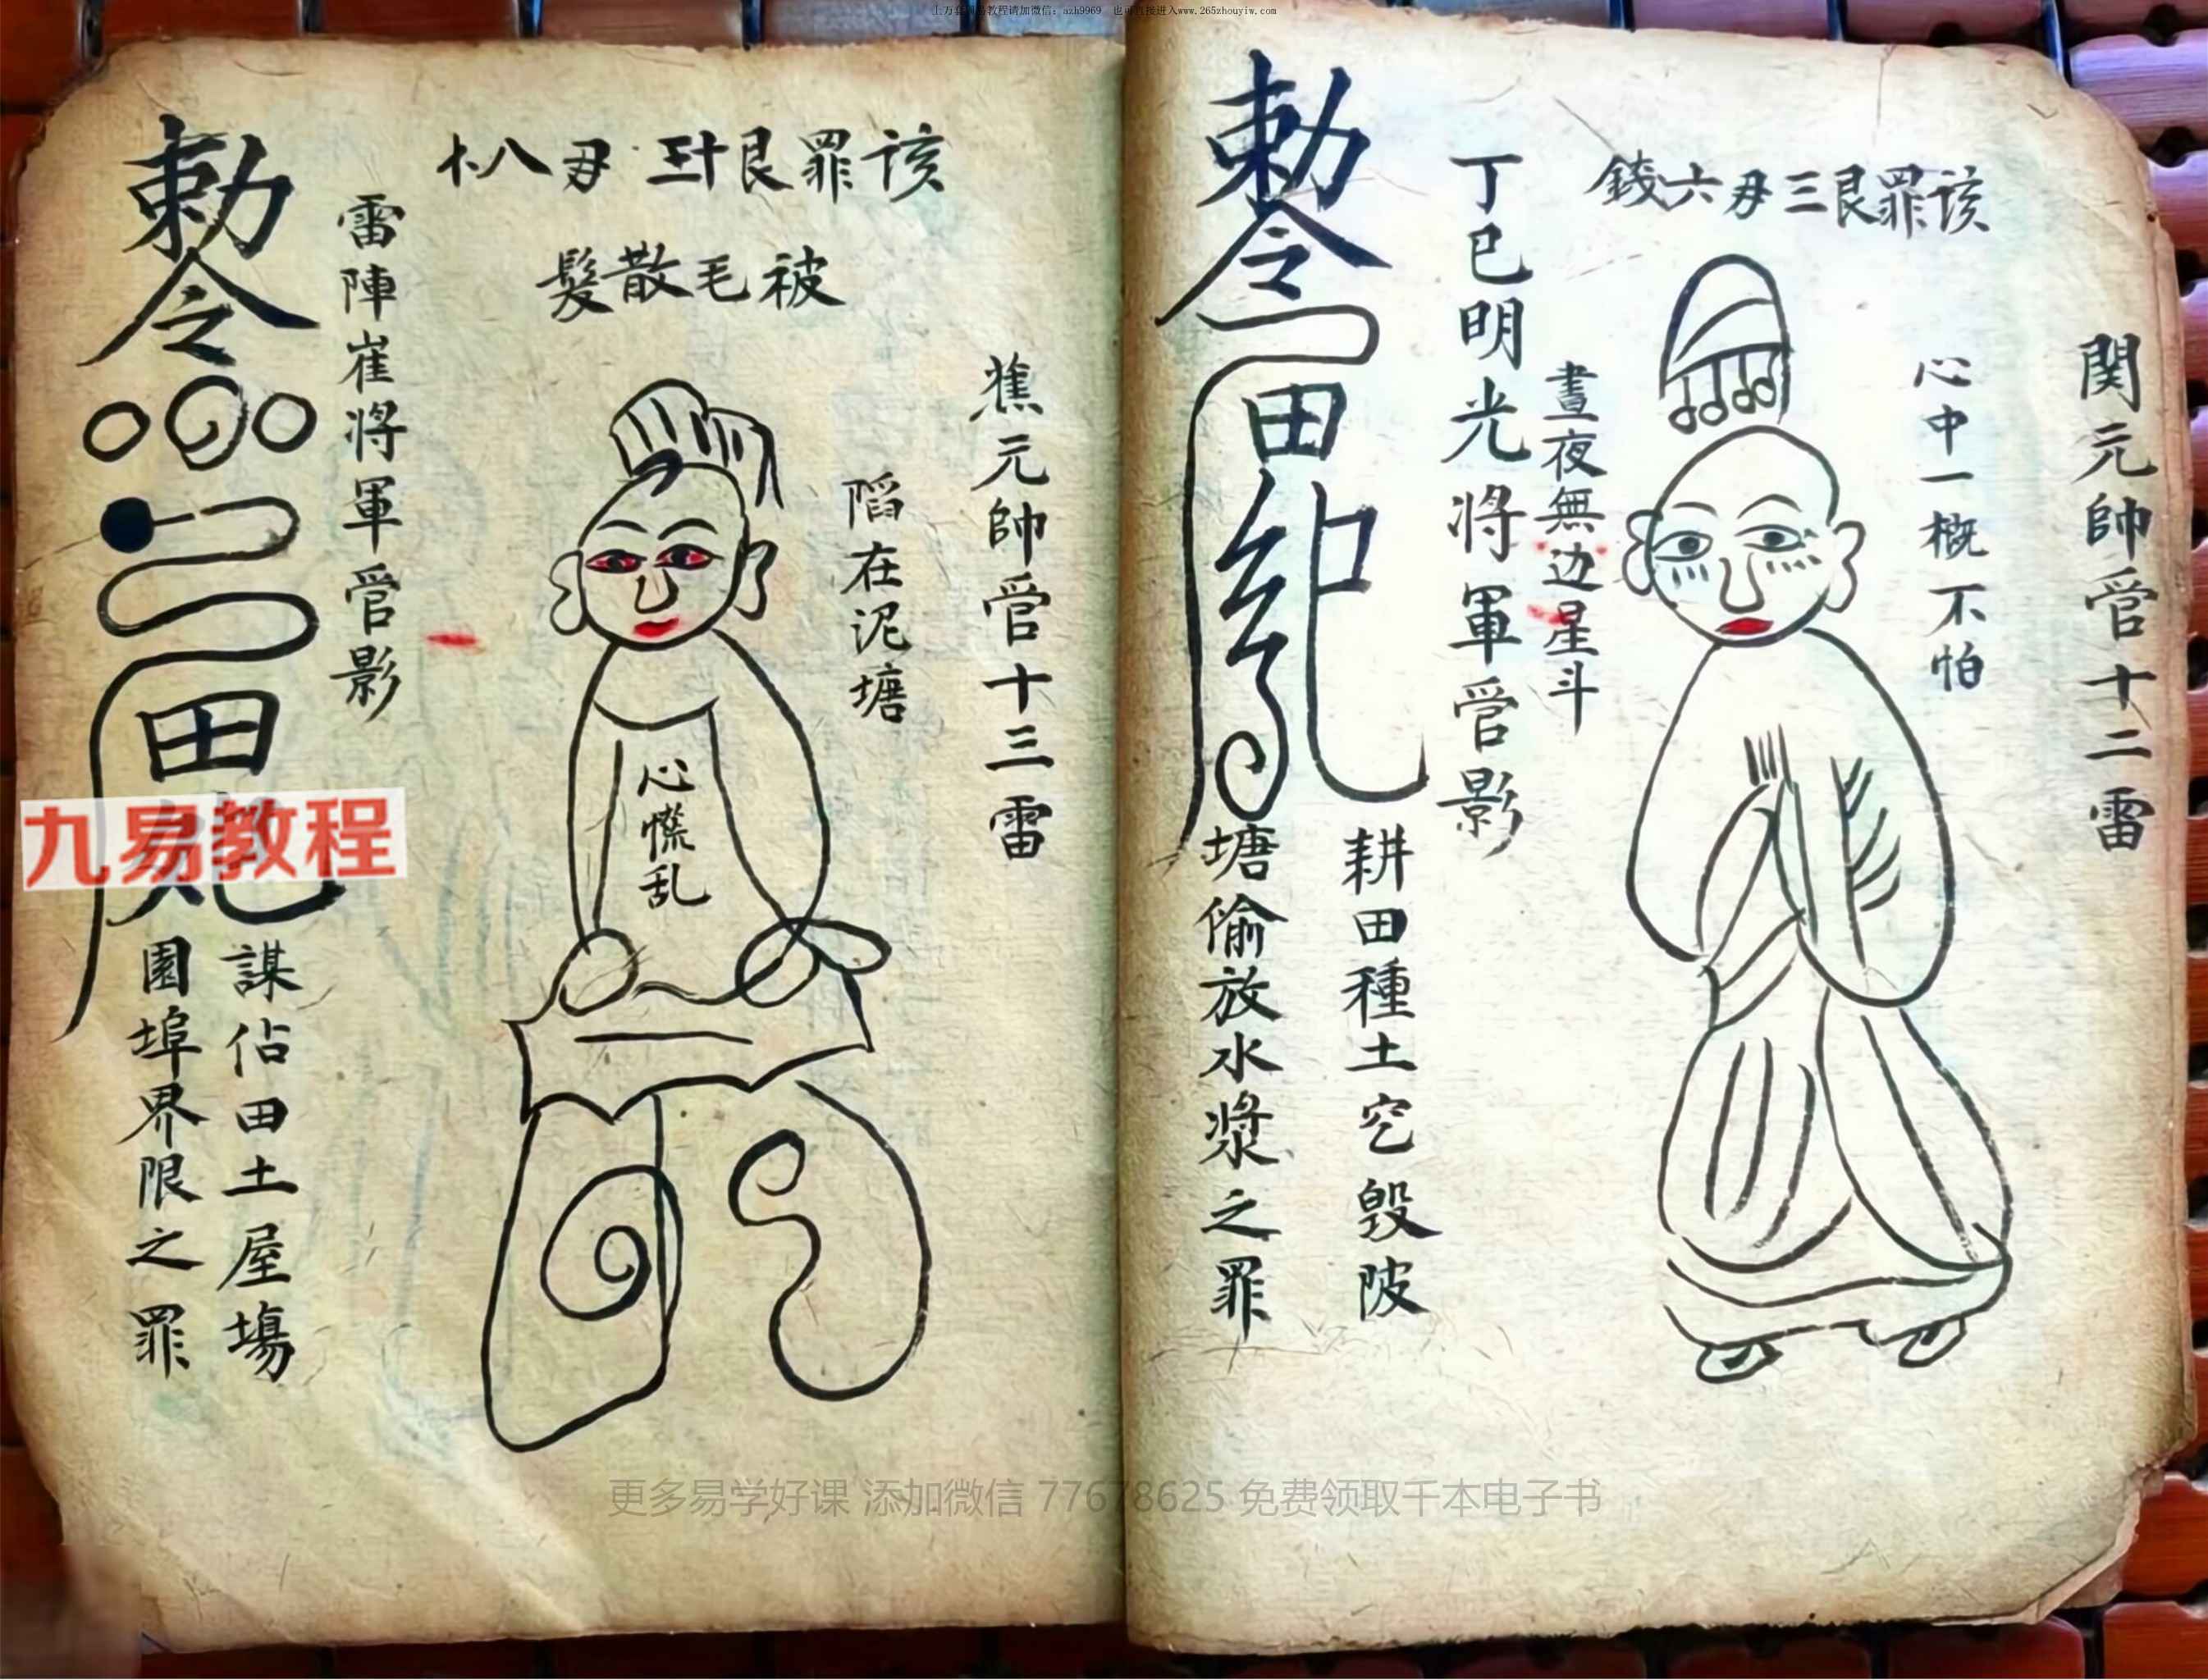 上万套周易教程请加微信：azh9969 也可直接进入www.265zhouyiw.com
関元帥管十二雷
該罪艮三毋六錢
心中一概不怕
晝夜無边星斗
丁巳明光將軍管影
勅令
田
耕田種土穵毀陂
塘偷放水漿之罪
蕉元帥管十三雷
該罪艮十三毋八
被毛散髮
陷在泥塘
心慌乱
雷陣崔將軍管影
勅令
田
謀佔田土屋塲
園埠界限之罪
九易教程
更多易学好课 添加微信 77678625 免费领取千本电子书